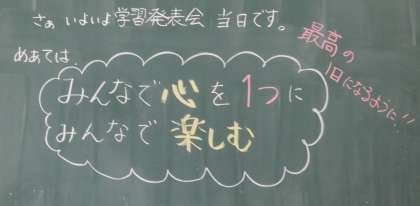 さぁ いよいよ学習発表会 当日です。
最高の
1日になるように!!
めあては、
みんなで心を1つに
みんなで 楽しむ